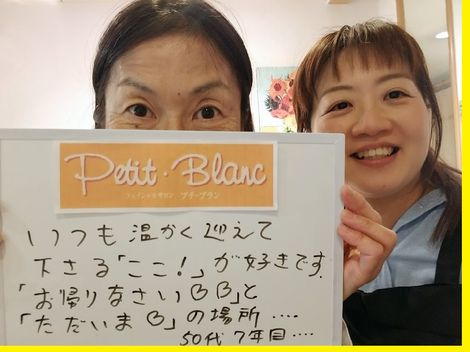 Petit・Blanc
フェイシャルサロン プチ・ブラン
いつも温かく迎えて
下さる「ここ！」が好きです。
「お帰りなさい♡♡」と
「ただいま♡」の場所....
50代 7年目....